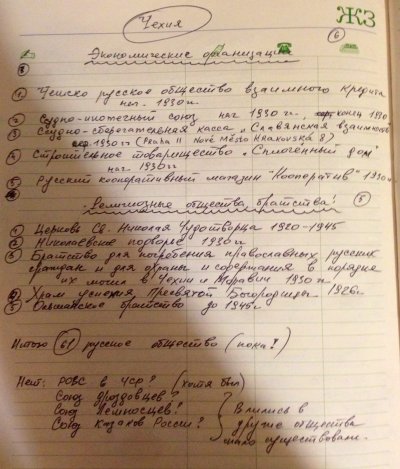 Чехия
ЖЗ
6
Экономические организации
① Чешско русское общество взаимного кредита
нач. 1930 гг.
② Ссудно-ипотечный союз нач 1930 гг., конец 1930
③ Ссудно-сберегательная касса "Славянская взаимность"
сер 1930 гг (Praha II Nové Město Krakovská 8)
④ Строительное товарищество "Сплочённый дом"
нач. 1930 гг
⑤ Русский кооперативный магазин "Кооператив" 1930 гг
Религиозные общества, братства!
5
① Церковь Св. Николая Чудотворца 1920-1945
② Николаевское подворье 1930 гг
③ Братство для погребения православных русских
граждан и для охраны и содержания в порядке
их могил в Чехии и Моравии 1930 гг.
④ Храм Успения Пресвятой Богородицы 1926 г.
⑤ Ольшанское братство до 1945 г.
Итого 61 русское общество (пока?)
Нет: РОВС в ЧСР? (хотя был)
Союз дроздовцев?
Союз Пемносцев?
Союз казаков России?
Влились в
другие общества
мало существовали.